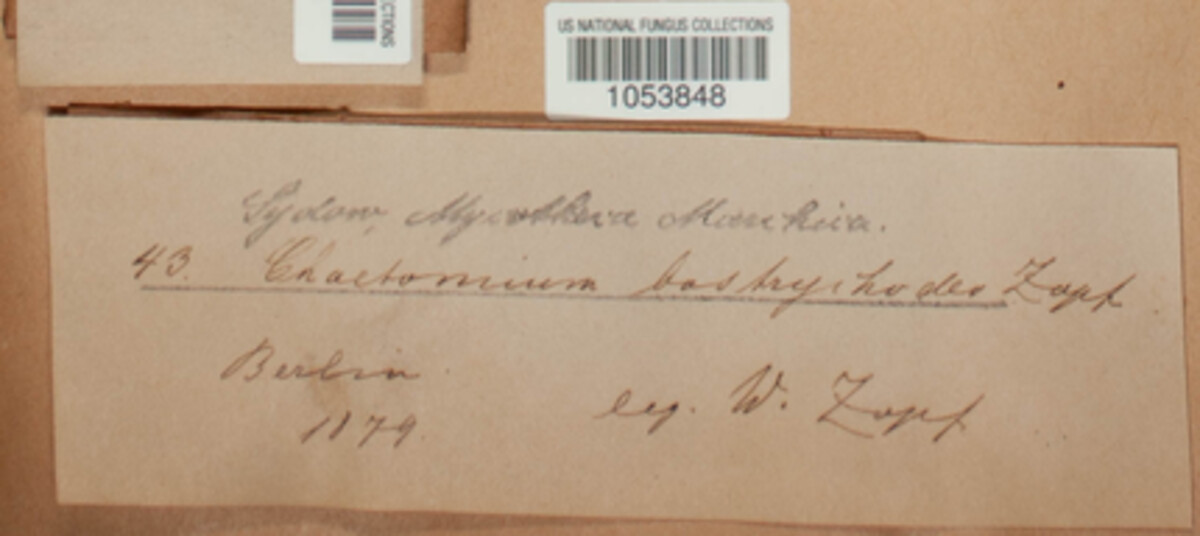 CTIONS
US NATIONAL FUNGUS COLLECTIONS
1053848
Sydow, Mycotheca Marchica.
43. Chaetomium bostrychodes Zopf
Berlin
1879.
leg. W. Zopf